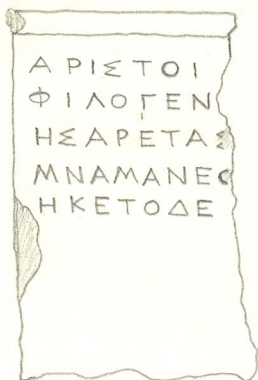 ΑΡΙΣΤΟΙ
ΦΙΛΟΓΕΝ
ΗΣΑΡΕΤΑΣ
ΜΝΑΜΑΝΕ
ΗΚΕΤΟΔΕ